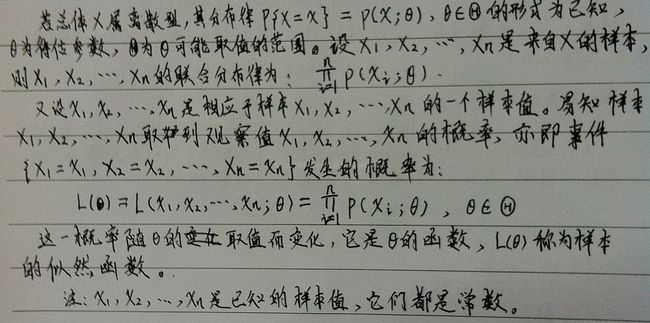 若总体X属离散型,其分布律P{X=x}=P(x;θ),θ∈Θ的形式为已知,
θ为待估参数,Θ为θ可能取值的范围。设X1,X2,…,Xn是来自X的样本,
则X1,X2,…,Xn的联合分布律为:∏_{i=1}^{n} P(xi;θ).
又设x1,x2,…,xn是相应于样本X1,X2,…,Xn的一个样本值。易知样本
X1,X2,…,Xn取到观察值x1,x2,…,xn的概率,亦即事件
{X1=x1,X2=x2,…,Xn=xn}发生的概率为:
L(θ)=L(x1,x2,…,xn;θ)=∏_{i=1}^{n} P(xi;θ),θ∈Θ
这一概率随θ的取值而变化,它是θ的函数,L(θ)称为样本
的似然函数。
注:x1,x2,…,xn是已知的样本值,它们都是常数。